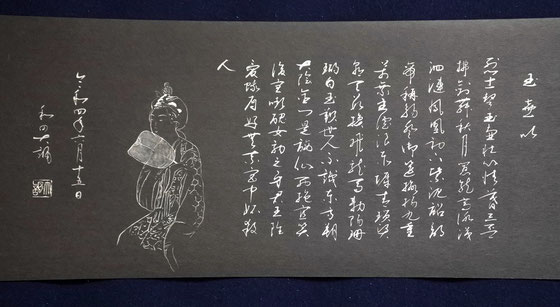 玉壺吟
烈士擊玉壺壯心惜暮年三盃
拂劍舞秋月忽然高詠涕
泗漣鳳凰初下紫泥詔謁
帝稱觴登御筵揄揚九重
萬乘主謔浪赤墀青瑣賢
朝天數換飛龍馬勅賜珊
瑚白玉鞭世人不識東方朔
大隐金門是謫仙西施宜笑
復宜嚬醜女効之徒累身君王雖
愛蛾眉好無奈宮中妬殺
人
令和四年六月十五日